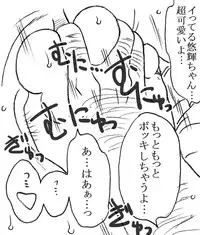 イってる悠輝ちゃん…
超可愛いよ…
むにっ…
むに…
むにゅっ
ぎゅっ
もっともっと
ボッキ
しちゃうよ…
あ…
はあぁ…っ
ぎゅっ
…?
…?